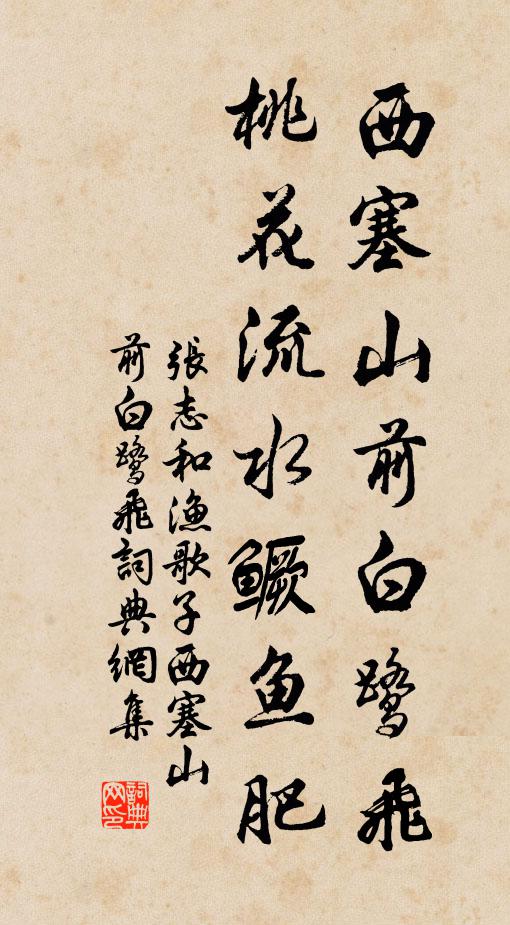 西塞山前白鹭飛
桃花流水鳜鱼肥
張志和漁歌子西塞山
前白鹭飛詞典網集
詞典网印